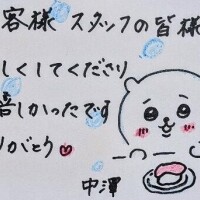 客様 スタッフの皆様
しくしてくださり
しかったです
りがとう
中澤